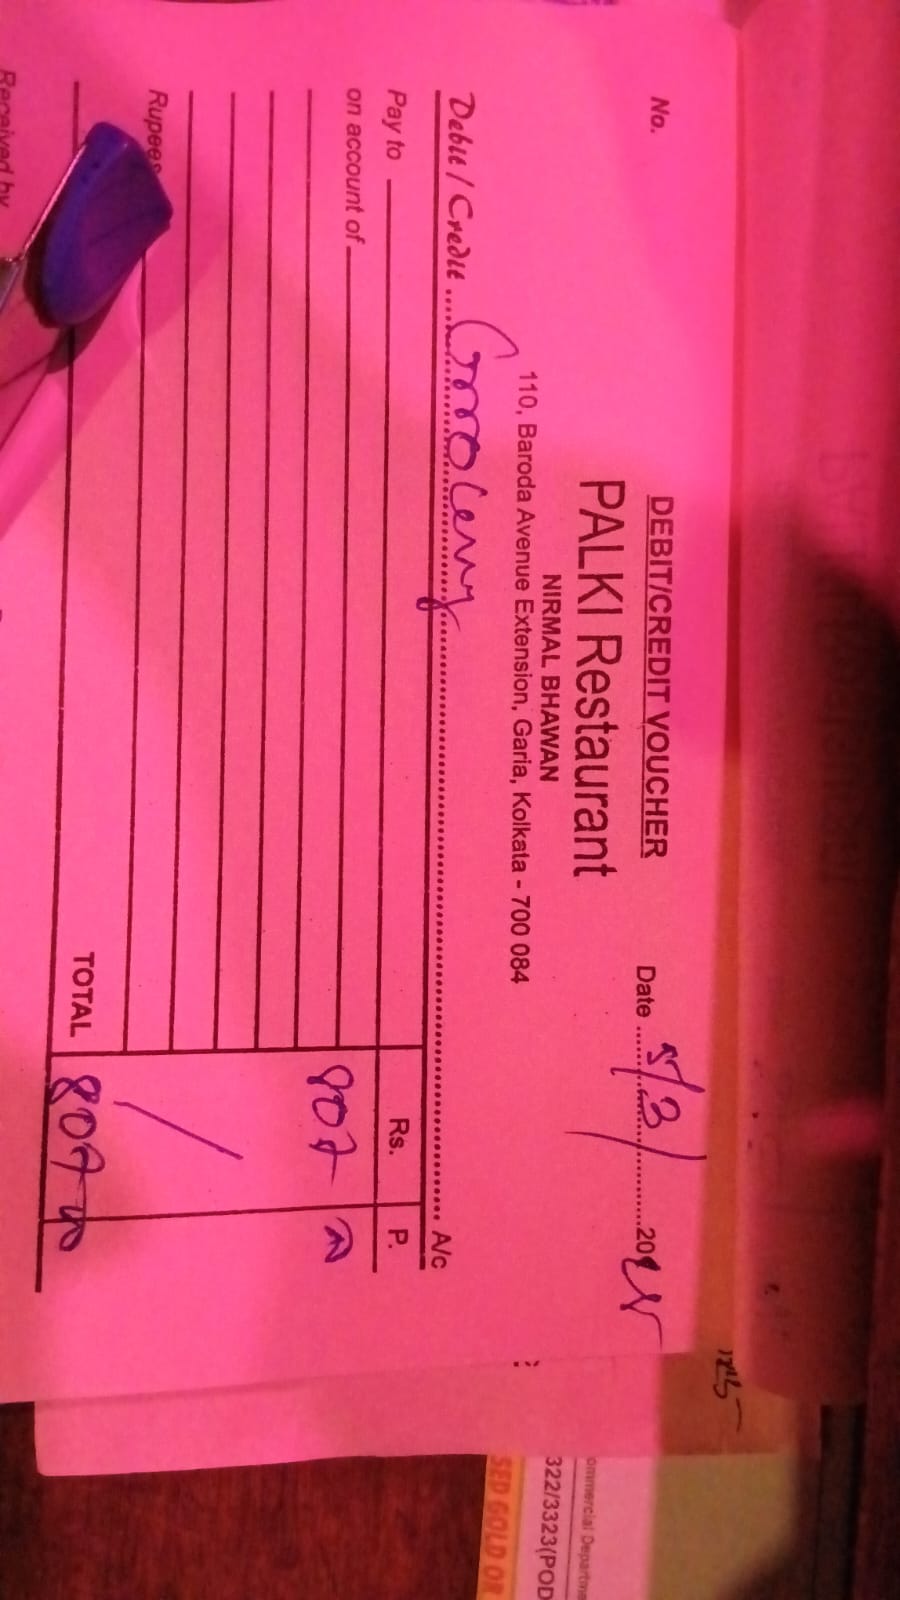 DEBIT/CREDIT VOUCHER
No.
Date 5/3/2025
PALKI Restaurant
NIRMAL BHAWAN
110, Baroda Avenue Extension, Garia, Kolkata - 700 084
Debit / Credit Grocery A/c
Pay to Rs. P.
on account of 807
Rupees
TOTAL 807
Received by
322/3323(POD
SED GOLD OR